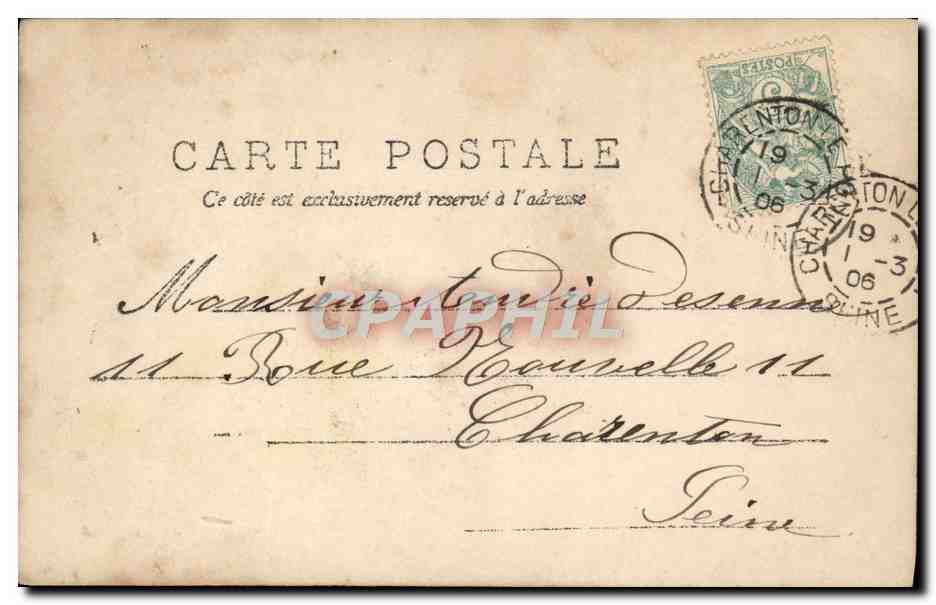 POSTES
5
CHARENTON-LE-PONT
19
1 -3
06
SEINE
CHARENTON LE
19
1 -3
06
SEINE
CARTE POSTALE
Ce côté est exclusivement reservé à l'adresse
Monsieur André Desenn
11 Rue Nouvelle 11
Charenton
Seine
CPAPHIL